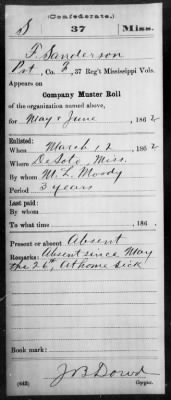 (Confederate.)
S 37 Miss.
T. Sanderson
Pvt, Co. F, 37 Reg't Mississippi Vols.
Appears on
Company Muster Roll
of the organization named above,
for May & June, 1862
Enlisted:
When March 12, 1862
Where DeSoto, Miss.
By whom M. L. Moody
Period 3 years
Last paid:
By whom
To what time , 186 .
Present or absent Absent
Remarks: Absent since May
the 26th, At home sick
Book mark:
(642) J B Dowd
Copyist.